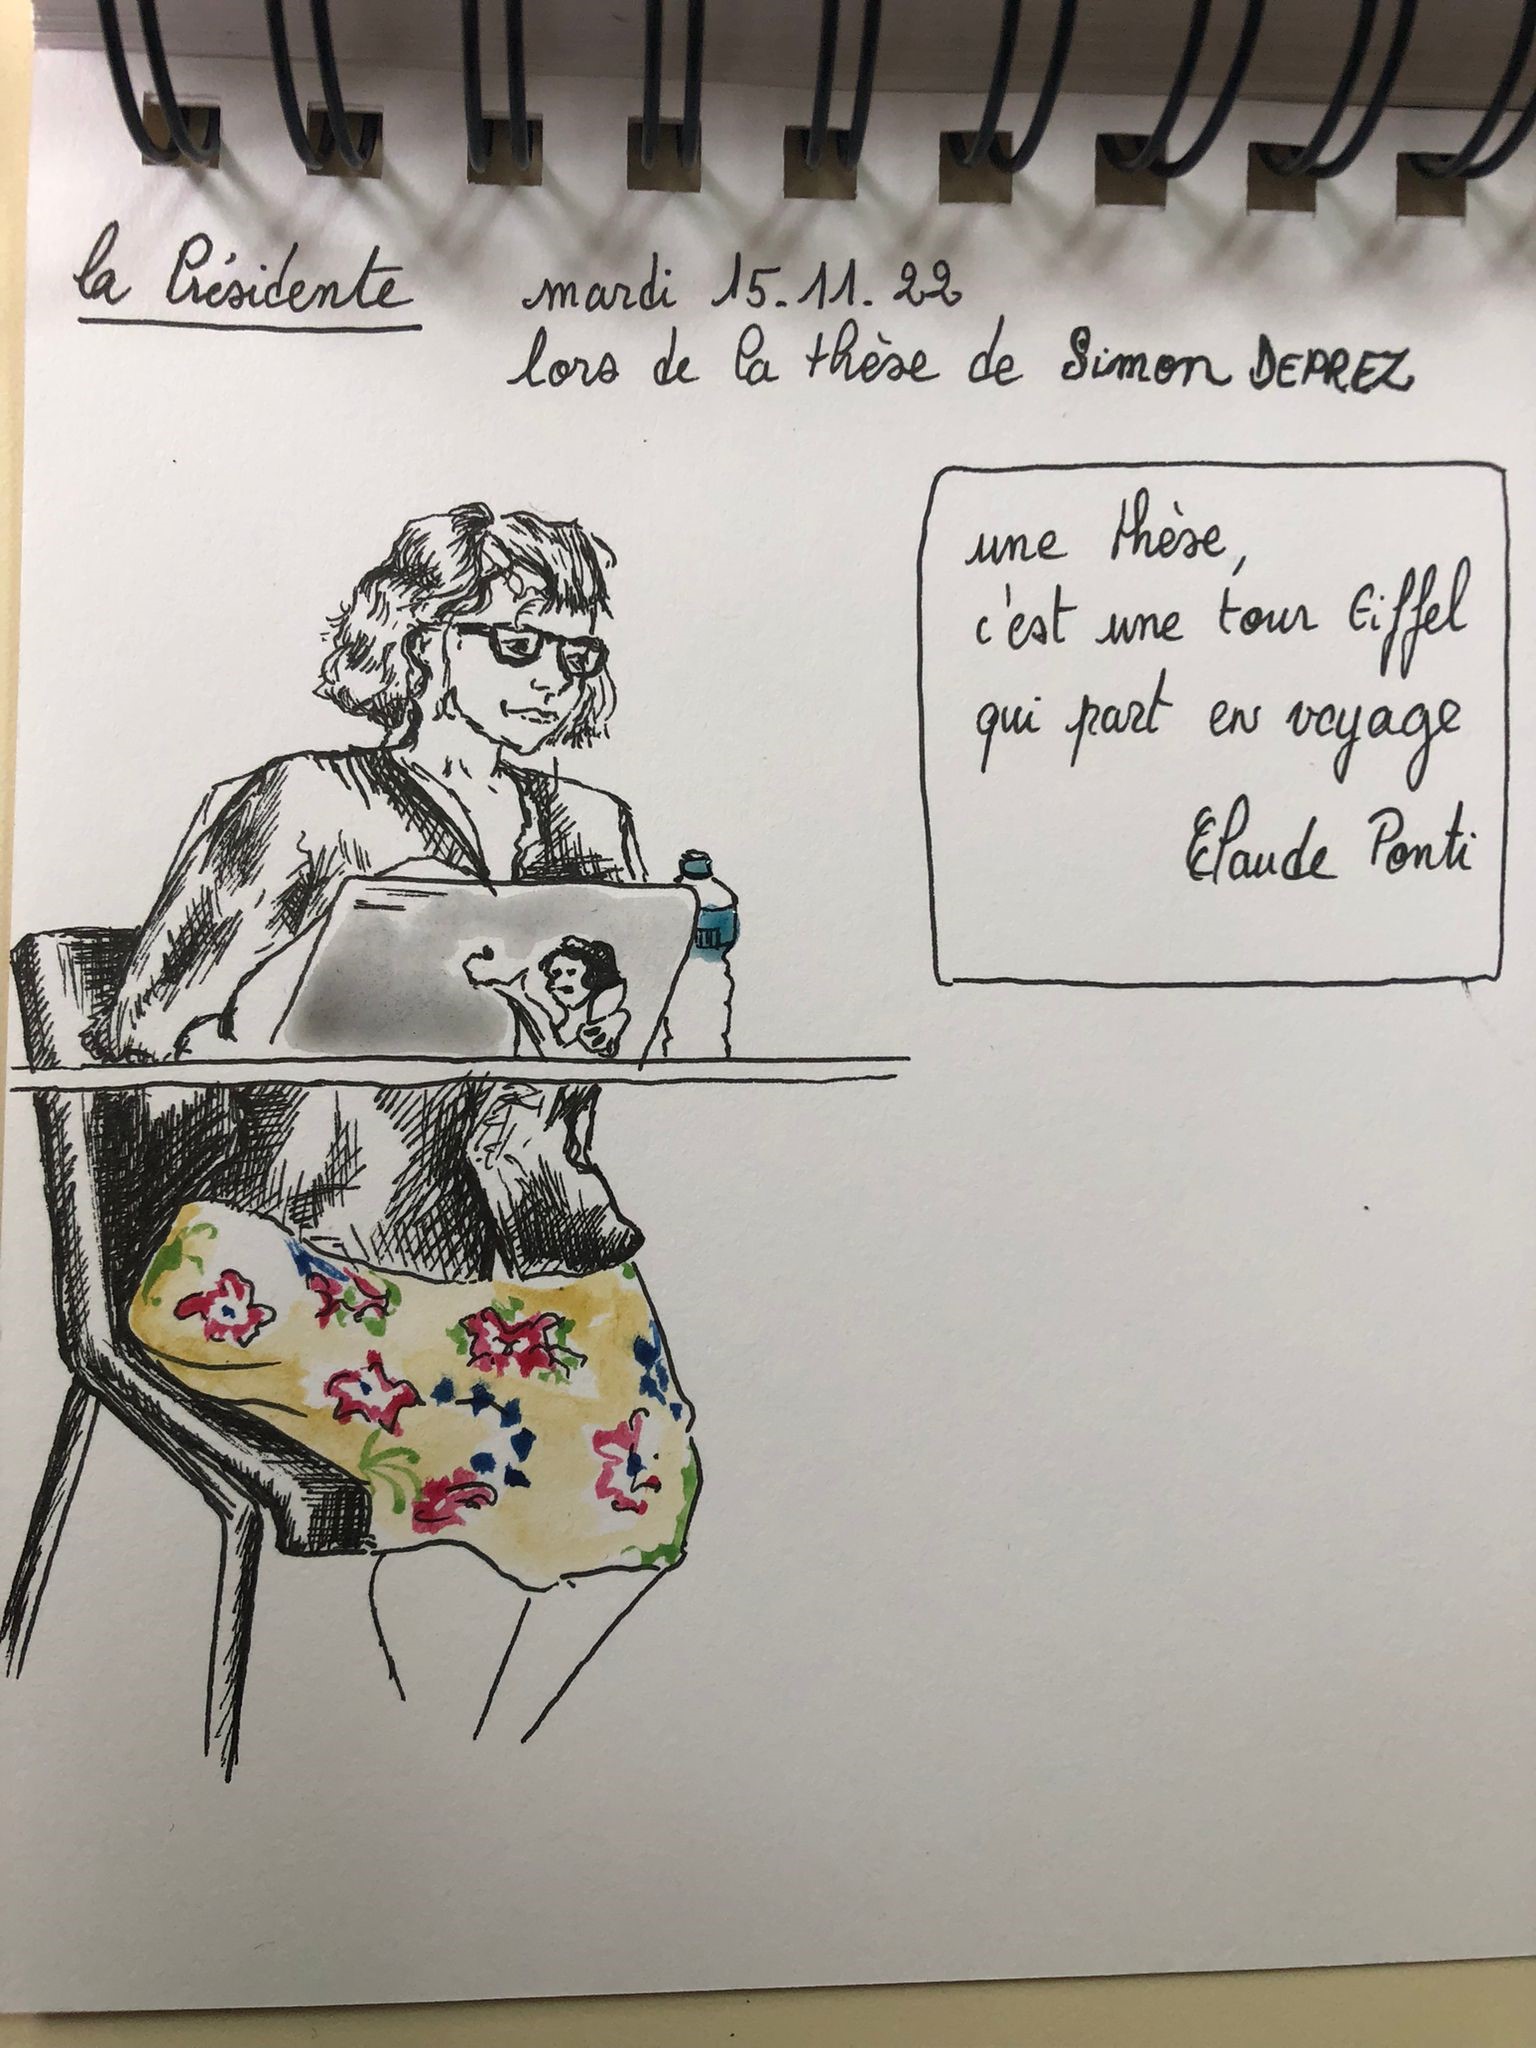 la Présidente
mardi 15.11.22
lors de la thèse de Simon DEPREZ
une thèse,
c'est une tour Eiffel
qui part en voyage
Claude Ponti